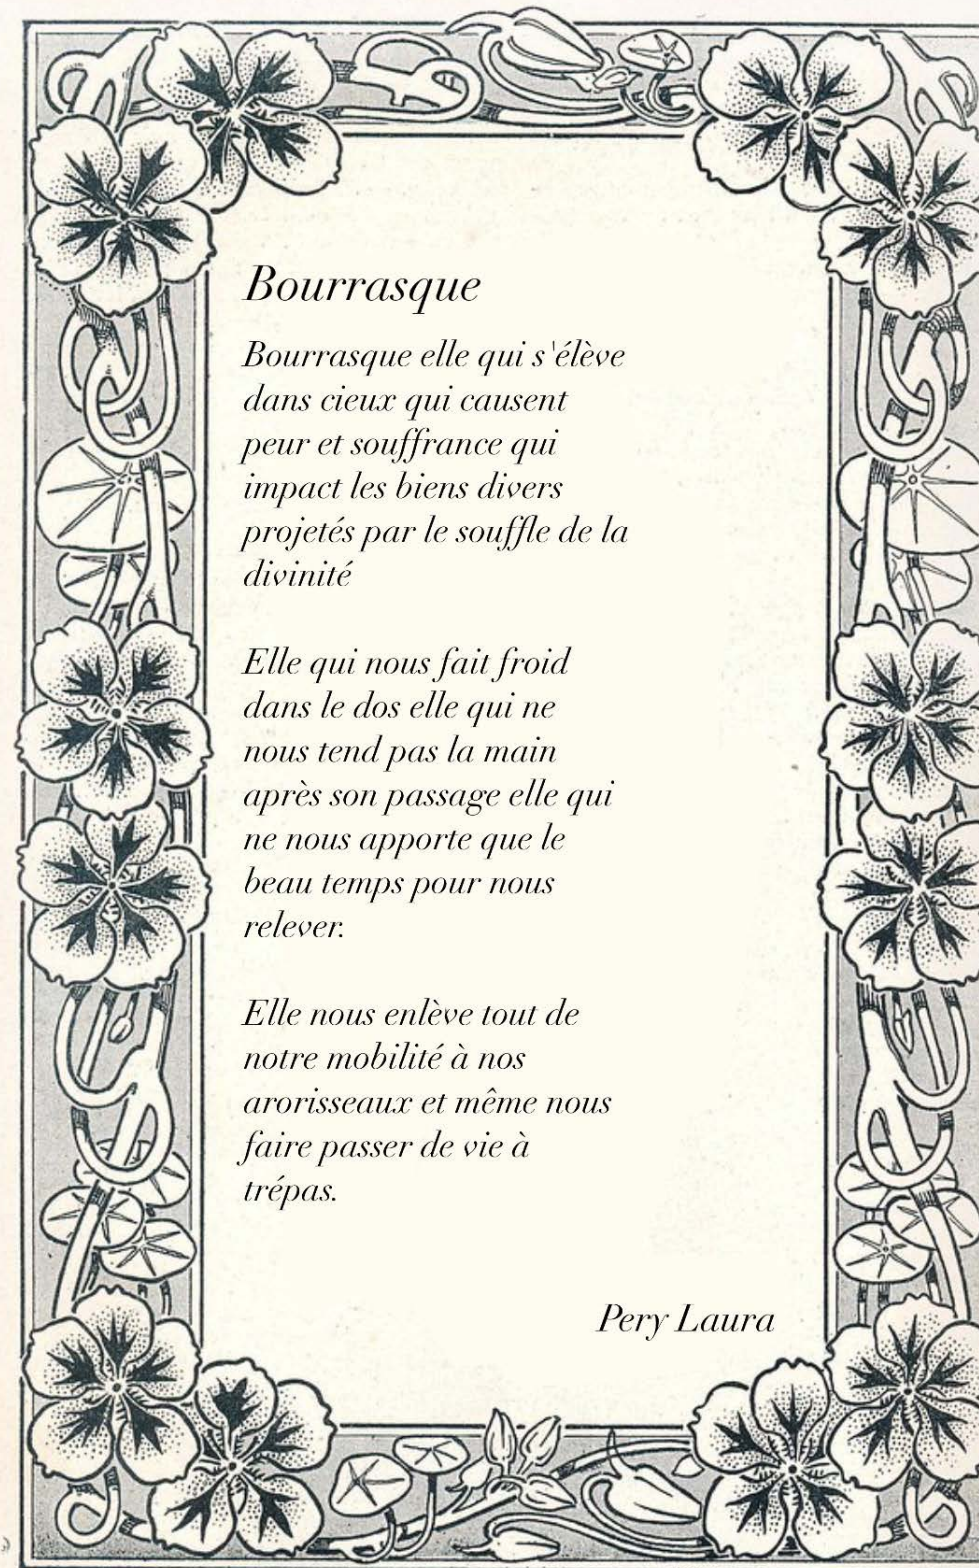 Bourrasque
Bourrasque elle qui s'élève
dans cieux qui causent
peur et souffrance qui
impact les biens divers
projetés par le souffle de la
divinité
Elle qui nous fait froid
dans le dos elle qui ne
nous tend pas la main
après son passage elle qui
ne nous apporte que le
beau temps pour nous
relever.
Elle nous enlève tout de
notre mobilité à nos
arorisseaux et même nous
faire passer de vie à
trépas.
Pery Laura